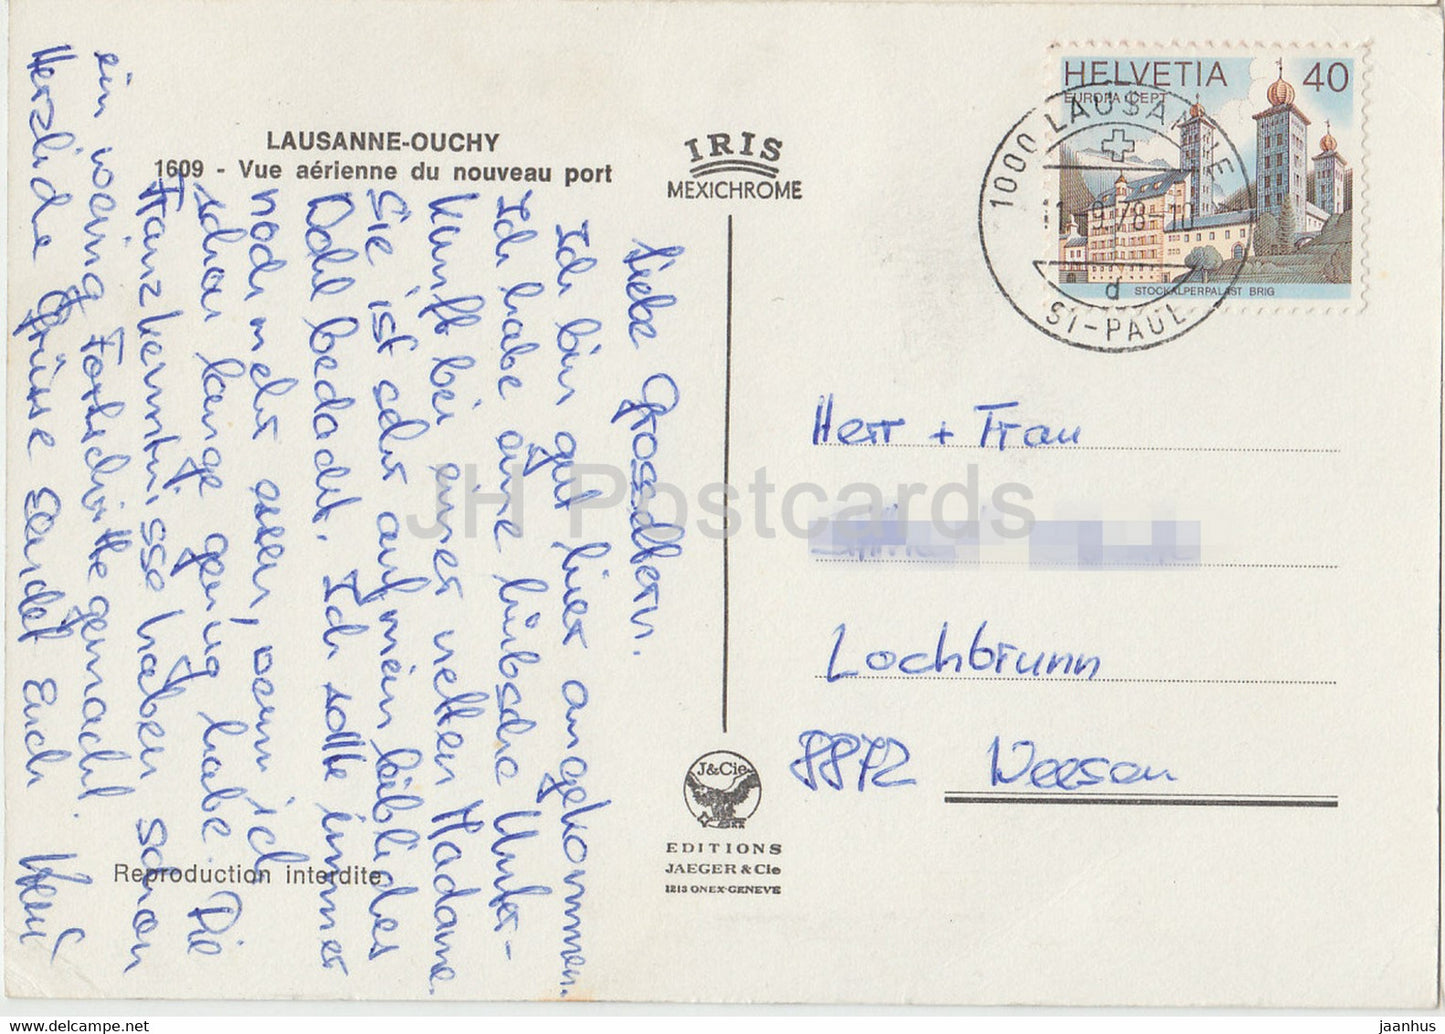 LAUSANNE-OUCHY
1609 - Vue aérienne du nouveau port
IRIS
MEXICHROME
HELVETIA 40
EUROPA CEPT
STOCKALPERPALAST BRIG
1000 LAUSANNE
11-9.78-10
d
ST-PAUL
Liebe Grosseltern.
Ich bin gut hier angekommen.
Ich habe eine hübsche Unter-
kunft bei einer netten Madame.
Sie ist sehr auf mein leibliches
Wohl bedacht. Ich sollte immer
noch mehr essen, wenn ich
schon lange genug habe. Die
Französkenntnisse haben schon
ein wenig Fortschritte gemacht.
Herzliche Grüsse sendet Euch
Herr + Frau
Lochbrunn
8872 Weesen
J&Cie
EDITIONS
JAEGER & Cie
1213 ONEX-GENEVE
Reproduction interdite
JH Postcards
jaanhus